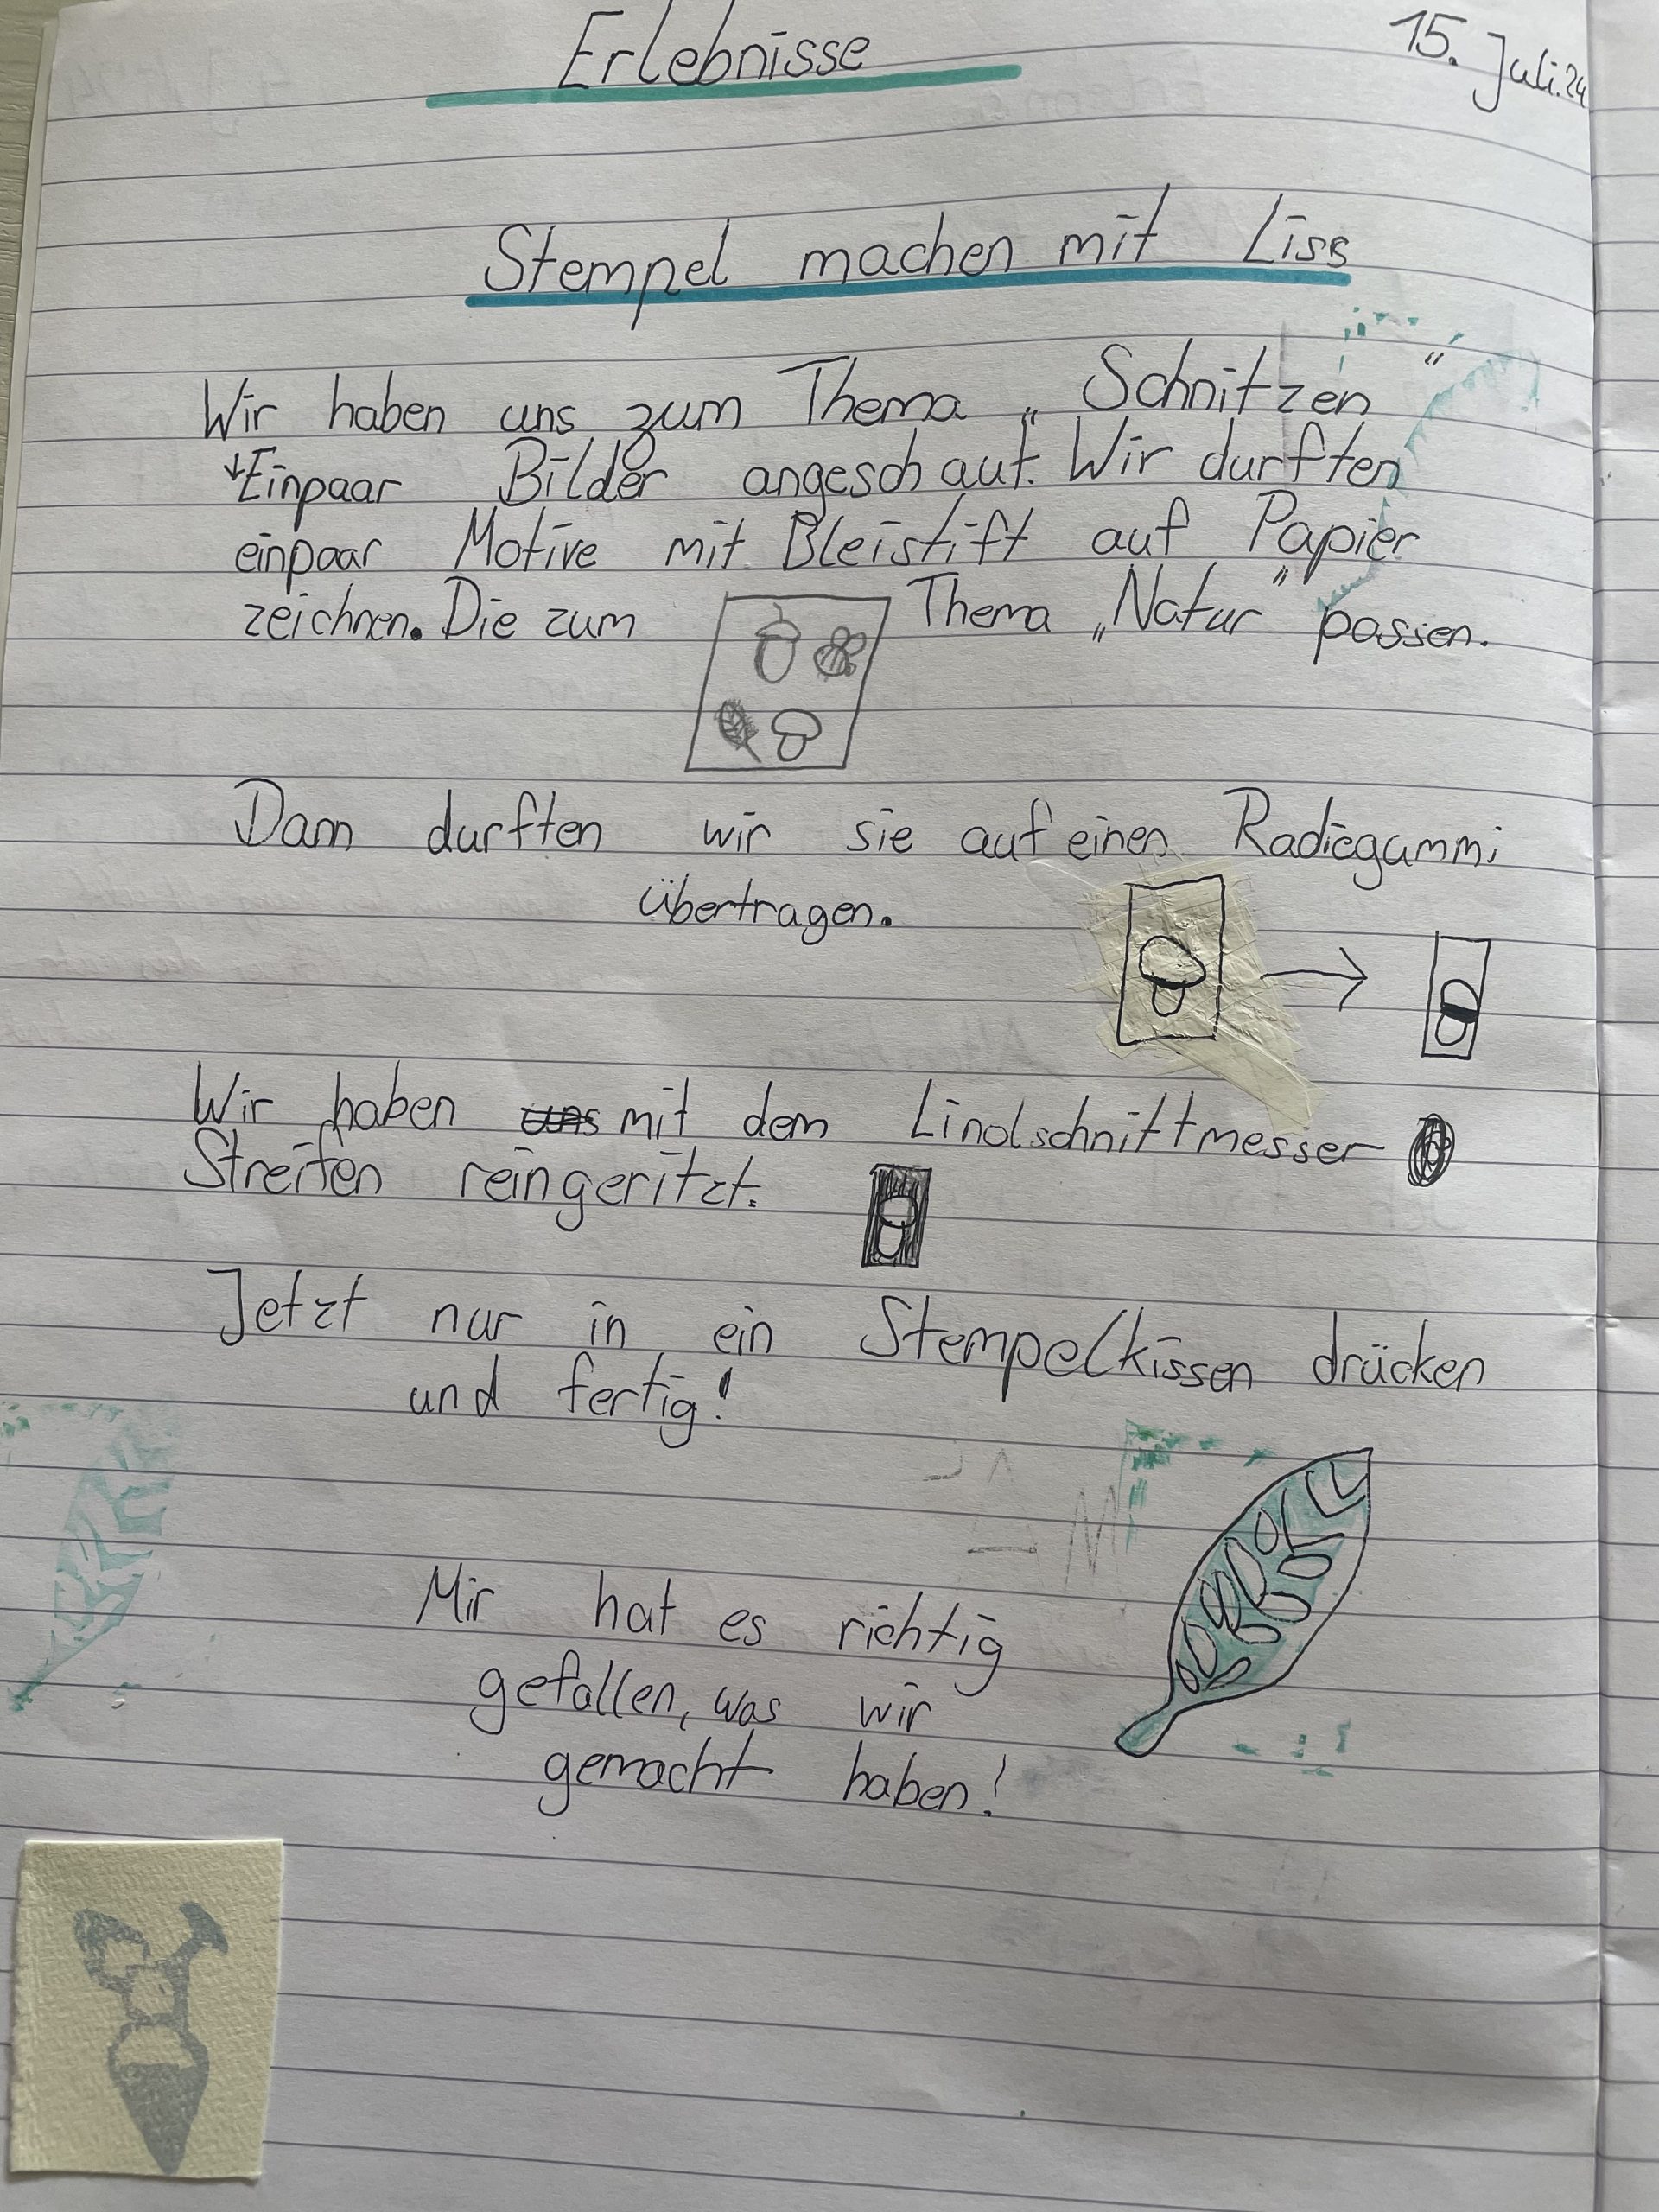 Erlebnisse
15. Juli.24
Stempel machen mit Liss
Wir haben uns zum Thema „Schnitzen“
Einpaar Bilder angeschaut. Wir durften
einpaar Motive mit Bleistift auf Papier
zeichnen. Die zum Thema „Natur“ passen.
Dann durften wir sie auf einen Radiegummi
übertragen.
Wir haben uns mit dem Linolschnittmesser
Streifen reingeritzt.
Jetzt nur in ein Stempelkissen drücken
und fertig!
Mir hat es richtig
gefallen, was wir
gemacht haben!